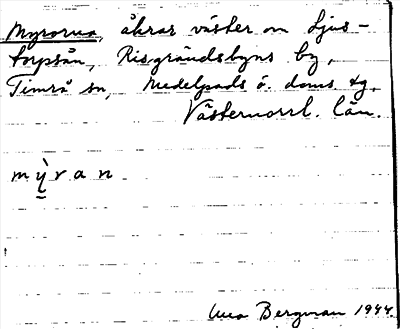 Myrorna, åkrar väster om Ljus-
torpsån, Risgrändsbyns by,
Timrå sn, Medelpads ö. doms. tg,
Västernorrl. län.
mỳran
Bergman 1944